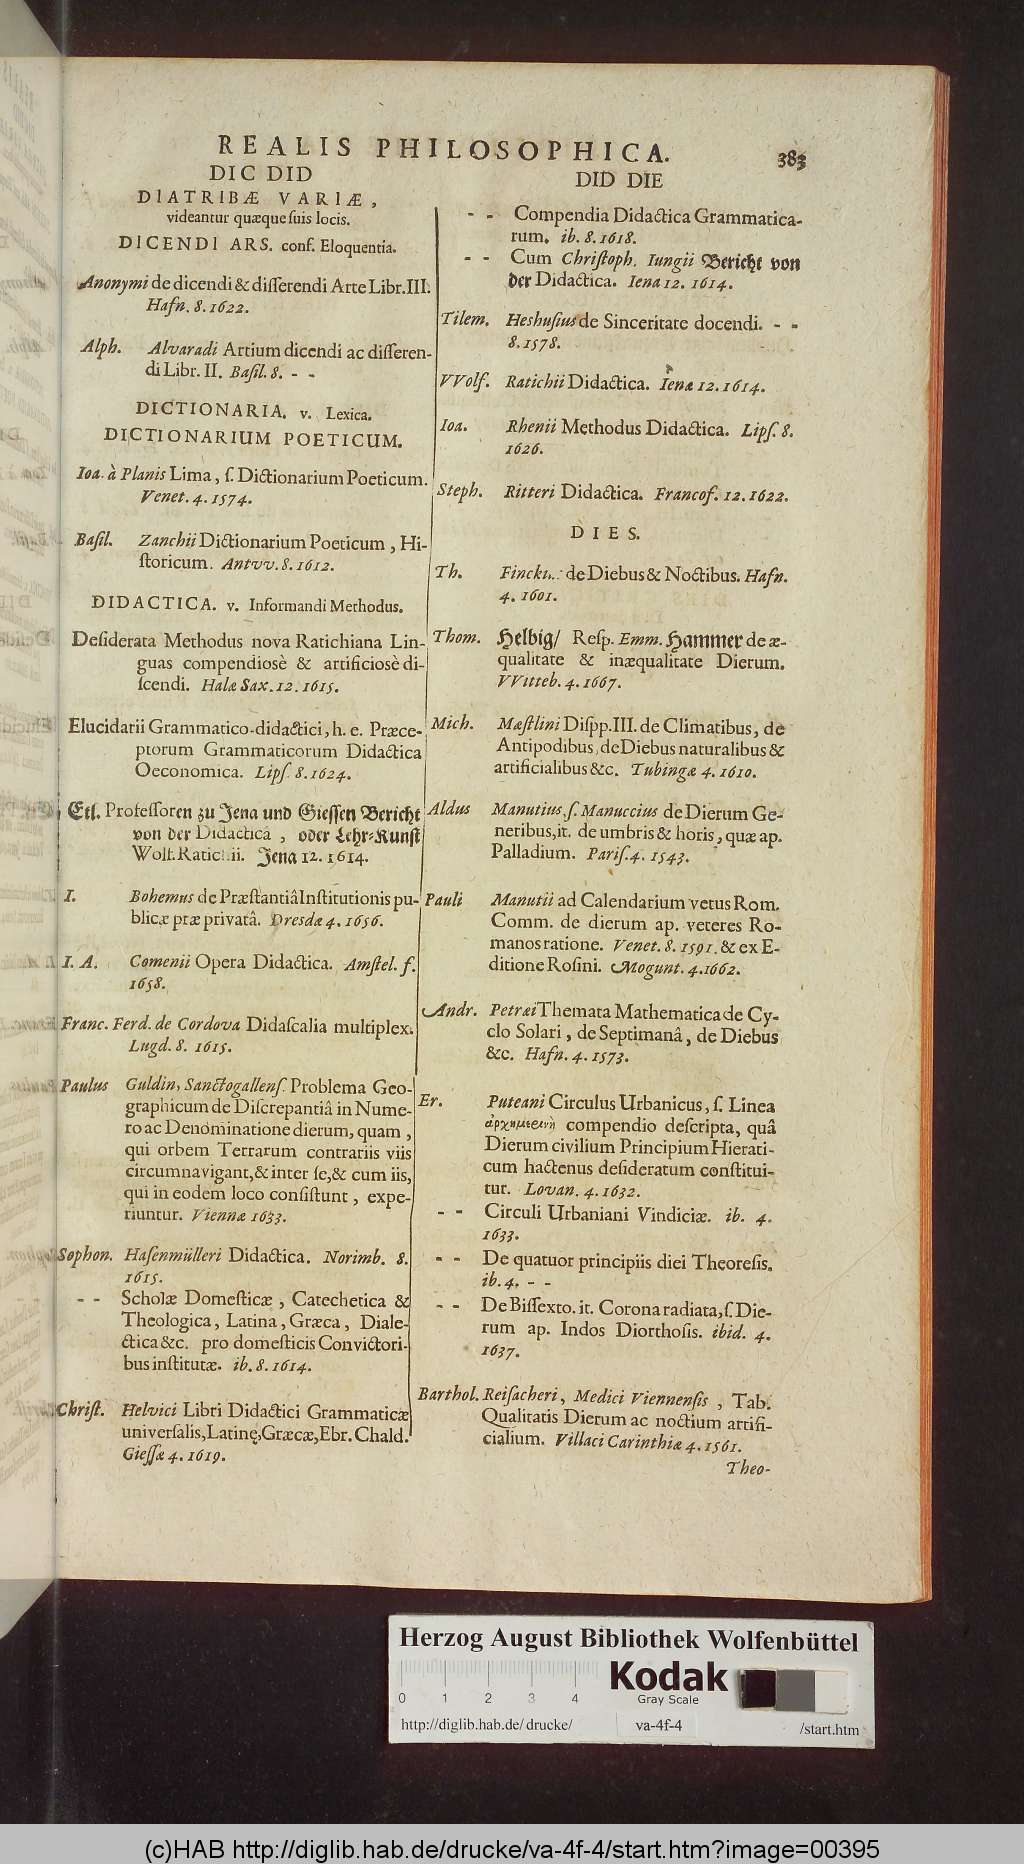 REALIS PHILOSOPHICA. 383
DIC DID
DIATRIBÆ VARIÆ,
videantur quæque suis locis.
DICENDI ARS. conf. Eloquentia.
Anonymi de dicendi & disserendi Arte Libr. III.
Hafn. 8. 1622.
Alph. Alvaradi Artium dicendi ac disseren-
di Libr. II. Basil. 8. - -
DICTIONARIA. v. Lexica.
DICTIONARIUM POETICUM.
Ioa. à Planis Lima, s. Dictionarium Poeticum.
Venet. 4. 1574.
Basil. Zanchii Dictionarium Poeticum, Hi-
storicum. Antvv. 8. 1612.
DIDACTICA. v. Informandi Methodus.
Desiderata Methodus nova Ratichiana Lin-
guas compendiosè & artificiosè di-
scendi. Halæ Sax. 12. 1615.
Elucidarii Grammatico-didactici, h. e. Præce-
ptorum Grammaticorum Didactica
Oeconomica. Lips. 8. 1624.
Etl. Professoren zu Jena und Giessen Bericht
von der Didactica, oder Lehr-Kunst
Wolf. Ratichii. Jena 12. 1614.
I. Bohemus de Præstantiâ Institutionis pu-
blicæ præ privatâ. Dresdæ 4. 1656.
I. A. Comenii Opera Didactica. Amstel. f.
1658.
Franc. Ferd. de Cordova Didascalia multiplex.
Lugd. 8. 1615.
Paulus Guldin, Sanctogallens. Problema Geo-
graphicum de Discrepantiâ in Nume-
ro ac Denominatione dierum, quam,
qui orbem Terrarum contrariis viis
circumnavigant, & inter se, & cum iis,
qui in eodem loco consistunt, expe-
riuntur. Viennæ 1633.
Sophon. Hasenmülleri Didactica. Norimb. 8.
1615.
- - Scholæ Domesticæ, Catechetica &
Theologica, Latina, Græca, Diale-
ctica &c. pro domesticis Convictori-
bus institutæ. ib. 8. 1614.
Christ. Helvici Libri Didactici Grammaticæ
universalis, Latinę, Græcæ, Ebr. Chald.
Giessæ 4. 1619.
DID DIE
- - Compendia Didactica Grammatica-
rum. ib. 8. 1618.
- - Cum Christoph. Iungii Bericht von
der Didactica. Iena 12. 1614.
Tilem. Heshusius de Sinceritate docendi. - -
8. 1578.
VVolf. Ratichii Didactica. Ienæ 12. 1614.
Ioa. Rhenii Methodus Didactica. Lips. 8.
1626.
Steph. Ritteri Didactica. Francof. 12. 1622.
DIES.
Th. de Diebus & Noctibus. Hafn.
4. 1601.
Thom. Helbig/ Resp. Emm. Hammer de æ-
qualitate & inæqualitate Dierum.
VVitteb. 4. 1667.
Mich. Mæstlini Dispp. III. de Climatibus, de
Antipodibus, de Diebus naturalibus &
artificialibus &c. Tubingæ 4. 1610.
Aldus Manutius, s. Manuccius de Dierum Ge-
neribus, it. de umbris & horis, quæ ap.
Palladium. Paris. 4. 1543.
Pauli Manutii ad Calendarium vetus Rom.
Comm. de dierum ap. veteres Ro-
manos ratione. Venet. 8. 1591. & ex E-
ditione Rosini. Mogunt. 4. 1662.
Andr. Petræi Themata Mathematica de Cy-
clo Solari, de Septimanâ, de Diebus
&c. Hafn. 4. 1573.
Er. Puteani Circulus Urbanicus, s. Linea
compendio descripta, quâ
Dierum civilium Principium Hierati-
cum hactenus desideratum constitui-
tur. Lovan. 4. 1632.
- - Circuli Urbaniani Vindiciæ. ib. 4.
1633.
- - De quatuor principiis diei Theoresis.
ib. 4. - -
- - De Bissexto. it. Corona radiata, s. Die-
rum ap. Indos Diorthosis. ibid. 4.
1637.
Barthol. Reisacheri, Medici Viennensis, Tab.
Qualitatis Dierum ac noctium artifi-
cialium. Villaci Carinthiæ 4. 1561.
Theo-
Herzog August Bibliothek Wolfenbüttel
0 1 2 3 4
Kodak
Gray Scale
http://diglib.hab.de/drucke/ va-4f-4 /start.htm
(c)HAB http://diglib.hab.de/drucke/va-4f-4/start.htm?image=00395